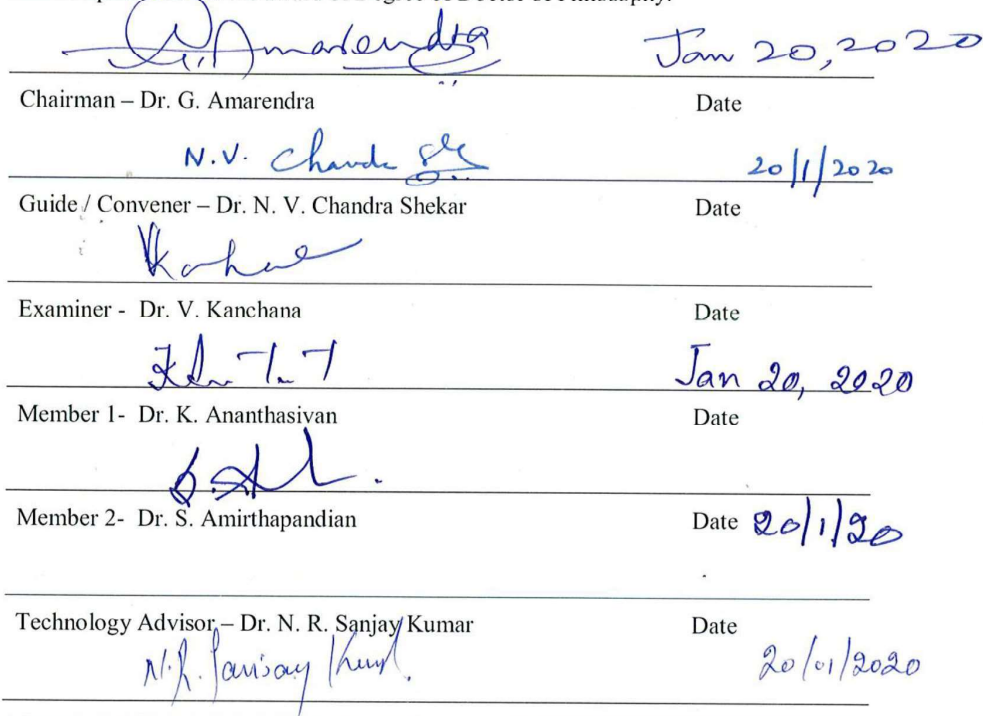 G. Amarendra Jan 20, 2020
Chairman – Dr. G. Amarendra Date
N.V. Chandra 20/1/2020
Guide / Convener – Dr. N. V. Chandra Shekar Date
Examiner - Dr. V. Kanchana Date
Jan 20, 2020
Member 1- Dr. K. Ananthasivan Date
Member 2- Dr. S. Amirthapandian Date 20/1/20
Technology Advisor – Dr. N. R. Sanjay Kumar Date
N.R. Sanjay Kumar 20/01/2020